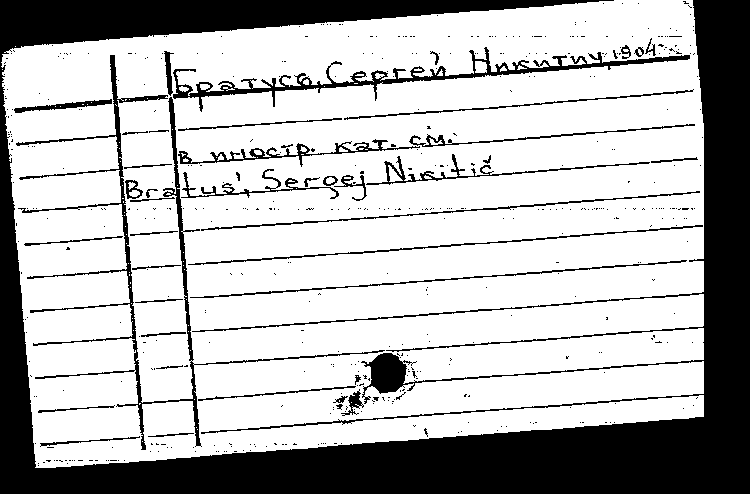 Братусь, Сергей Никитич, 1904-
в иностр. кат. см.
Bratus', Sergej Nikitič